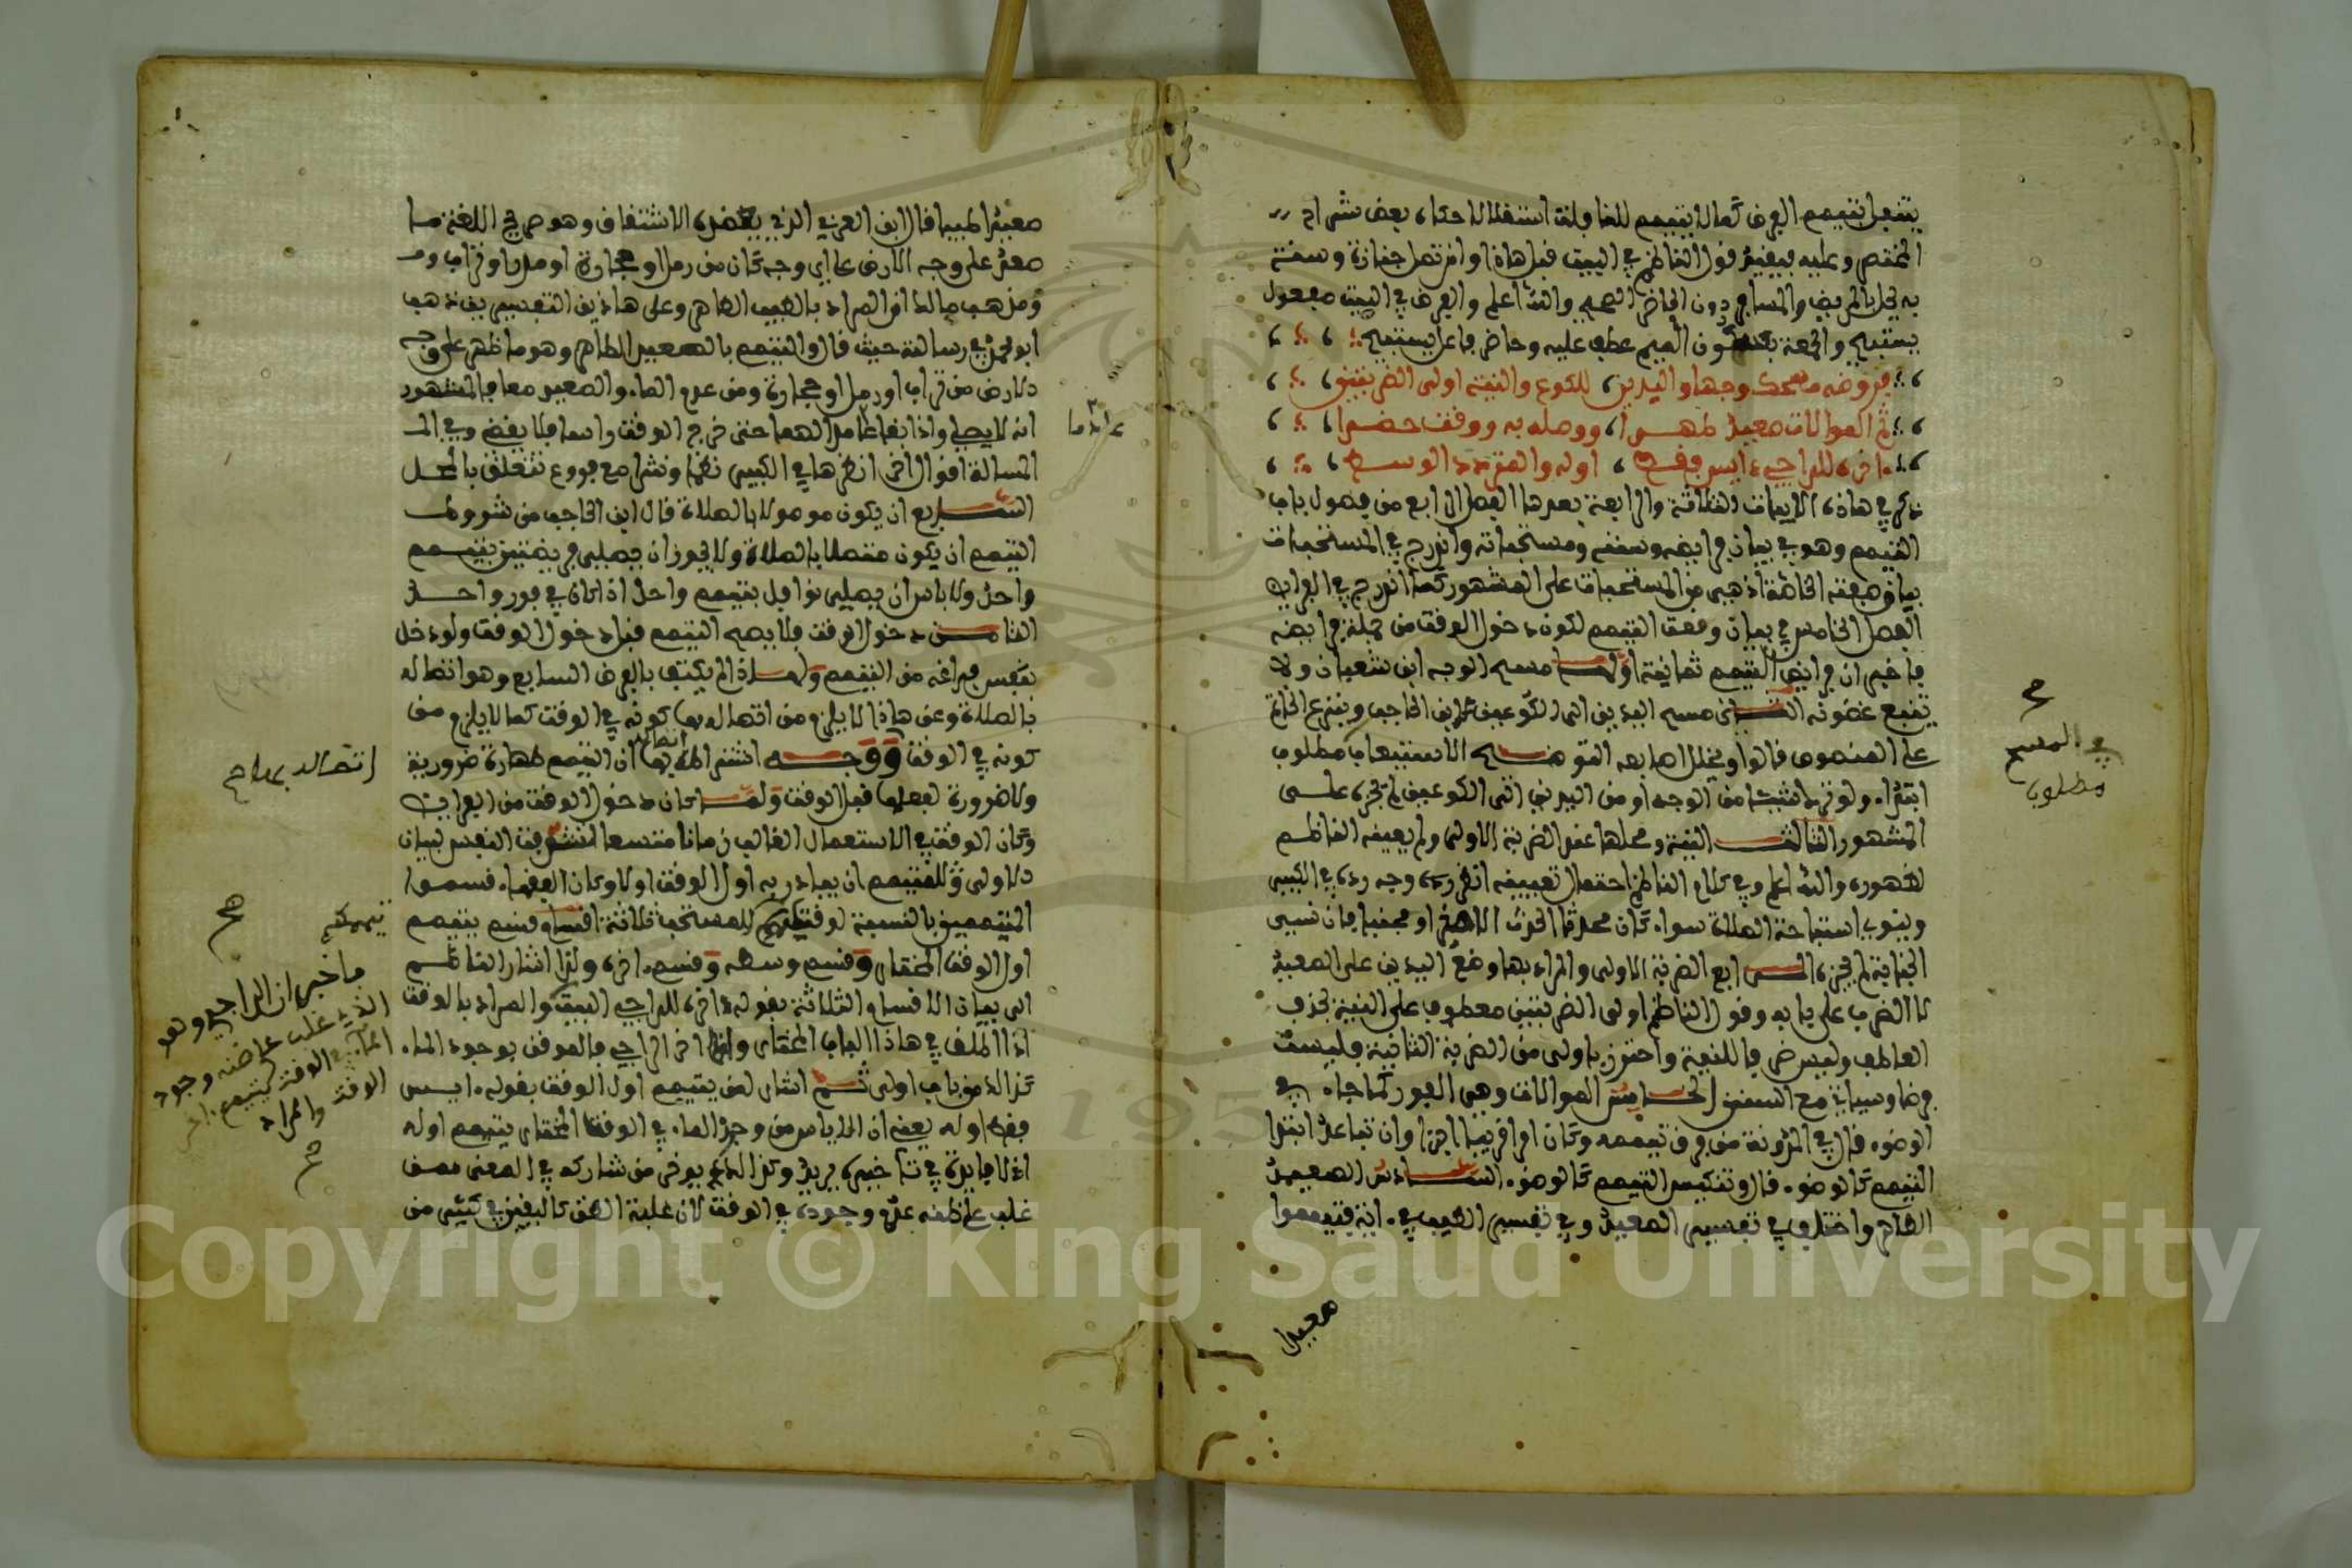 يتنفل بتيمم الفرض كما له التيمم للنافلة استقلالا حكاه بعض شراح
المختصر وعليه فيقيد قول الناظم في البيت قبل هاذا وان تصل جنازة وسنة
به يحل بالمريض والمسافر دون الحاضر الصحيح والله اعلم والفرض في البيت مفعول
يستبيح والجمعة بسكون الميم عطف عليه وحاضر فاعل يستبيح
فروضه مسحك وجها واليدين للكوع والنية اولى الضربتين
ثم الموالات صعيد طهرا ووصله به ووقت حضرا
اخره للراجي ءايس فقط اوله والمتردد الوسط
ذكر في هاذه الابيات الثلاثة والرابعة بعدها الفصل الرابع من فصول باب
التيمم وهو في بيان فرايضه وسننه ومستحباته وادرج في المستحبات
بيان صفته الخاصة اذ هي من المستحبات على المشهور كما ادرج في الفرايض
الفصل الخامس في بيان وقت التيمم لكون دخول الوقت من جملة فرايضه
فاخبر ان فرايض التيمم ثمانية اولها مسح الوجه ابن شعبان ولا
يتتبع غضونه الثاني مسح اليدين الى الكوعين ابن الحاجب وينزع الخاتم
على المنصوص قالوا ويخلل اصابعه التوضيح الاستيعاب مطلوب
ابتداء ولو ترك شيئا من الوجه او من اليدين الى الكوعين لم يجزه على
المشهور الثالث النية ومحلها عند الضربة الاولى ولم يعينه الناظم
لظهوره والله اعلم وفي كلام الناظم احتمال تعيينه انظره وجه رده في الكبير
وينوي استباحة الصلاة سواء كان محدثا الحدث الاصغر او مجنبا فان نسي
الجنابة لم يجزه الرابع الضربة الاولى والمراد بها وضع اليدين على الصعيد
لا الضرب على بابه وقول الناظم اولى الضربتين معطوف على النية بحذف
العاطف وليس ضربا للنية واحترز باولى من الضربة الثانية فليست
فرضا وسياتي مع السنن الخامس الموالات وهي الفور كما جاء في
الوضوء قال في المدونة من فرق تيممه وكان امرا قريبا اجزا وان تباعد ابتدا
التيمم كالوضوء قال وتنكيس التيمم كالوضوء السادس الصعيد
الطاهر واختلف في تفسير الصعيد وفي تفسير الطيب في ءاية فتيمموا
صعيدا
ح
في المسح
مطلوب
صعيدا طيبا قال ابن العربي الذي يعضده الاشتقاق وهو صريح اللغة ما
صعد على وجه الارض على اي وجه كان من رمل او حجارة او مدر او تراب ومـ
ومذهب مالك ان المراد بالطيب الطاهر وعلى هاذين التفسيرين ذهب
ابو محمد في رسالته حيث قال والتيمم بالصعيد الطاهر وهو ما ظهر على وجه
الارض من تراب او رمل او حجارة ومن عدم الماء والصعيد معا فالمشهور
انه لا يصلي واذا بقا عادما لهما حتى خرج الوقت وانما فلا يقضي وفي
المسالة اقوال اخر انظرها في الكبير نظما ونثرا مع فروع تتعلق بالمحل
السابع ان يكون موصولا بالصلاة قال ابن الحاجب من شروط
التيمم ان يكون متصلا بالصلاة ولا يجوز ان يصلي فريضتين بتيمم
واحد ولا باس ان يصلي نوافل بتيمم واحد اذا كان في فور واحد
الثامن دخول الوقت فلا يصح التيمم قبل دخول الوقت ولو دخل
بنفس فراغه من التيمم ولهاذا لم يكتف بالفرض السابع وهو اتصاله
بالصلاة وعن هاذا لا يلزم من اتصاله بها كونه في الوقت كما لا يلزم من
كونه في الوقت ووجه اشتراط ان التيمم طهارة ضرورية
ولا ضرورة لفعلها قبل الوقت ولما كان دخول الوقت من الفرايض
وكان الوقت في الاستعمال الغالب زمانا متسعا تشوفت النفس لبيان
الاولى للمتيمم ان يبادر به اول الوقت او لا وكان الفقهاء قسموا
المتيممين بالنسبة لوقتهم المستحب ثلاثة اقسام قسم يتيمم
اول الوقت المختار وقسم وسطه وقسم ءاخره ولذا اشار الناظم
الى بيان الاقسام الثلاثة بقوله ءاخره للراجي البيت والمراد بالوقت
اذا اطلق في هاذا الباب المختار واذا اخر الراجي فالموقن بوجود الماء
كذالك من باب اولى ثم اشار لمن يتيمم اول الوقت بقوله ءايس
فقط اوله يعني ان الايايس من وجود الماء في الوقت المختار يتيمم اوله
اذ لا فايدة في تاخيره يريد وكذالك يوخر من شاركه في المعنى ممن
غلب على ظنه عدم وجوده في الوقت لان غلبة الظن كاليقين في كثير من
عادما
اتصاله بها صح
تيممكم
صح
فاخبر ان الراجي وهو
الذي غلب على ظنه وجود
الماء في الوقت يتيمم ءاخر
الوقت والمراد
صح
Copyright © King Saud University
195